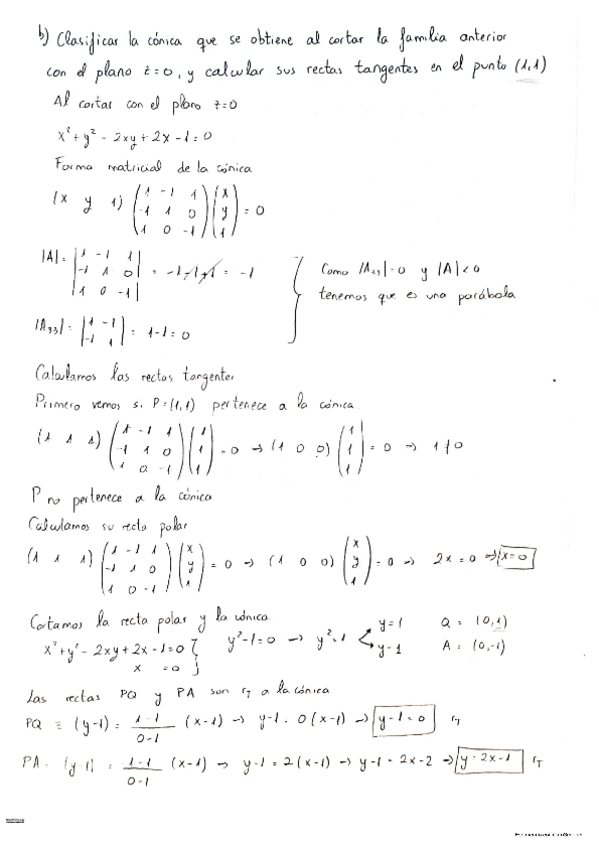 b) Clasificar la cónica que se obtiene al cortar la familia anterior
con el plano z=0, y calcular sus rectas tangentes en el punto (1,1)
Al cortar con el plano z=0
x² + y² - 2xy + 2x - 1 = 0
Forma matricial de la cónica
(x y 1) (1 -1 1 / -1 1 0 / 1 0 -1) (x / y / 1) = 0
|A| = |1 -1 1 / -1 1 0 / 1 0 -1| = -1 -1 +1 = -1
Como |A₃₃| = 0 y |A| < 0
tenemos que es una parábola
|A₃₃| = |1 -1 / -1 1| = 1-1 = 0
Calculamos las rectas tangentes
Primero vemos si P=(1,1) pertenece a la cónica
(1 1 1) (1 -1 1 / -1 1 0 / 1 0 -1) (1 / 1 / 1) = 0 → (1 0 0) (1 / 1 / 1) = 0 → 1≠0
P no pertenece a la cónica
Calculamos su recta polar
(1 1 1) (1 -1 1 / -1 1 0 / 1 0 -1) (x / y / 1) = 0 → (1 0 0) (x / y / 1) = 0 → 2x = 0 → x=0
Cortamos la recta polar y la cónica
x² + y² - 2xy + 2x - 1 = 0 } y² - 1 = 0 → y² = 1 y=1 Q = (0,1)
x = 0 y-1 A = (0,-1)
Las rectas PQ y PA son rT a la cónica
PQ ≡ (y-1) = 1-1 / 0-1 (x-1) → y-1 = 0(x-1) → y-1=0 rT
PA = (y-1) = 1-1 / 0-1 (x-1) → y-1 = 2(x-1) → y-1 = 2x-2 → y = 2x-1 rT